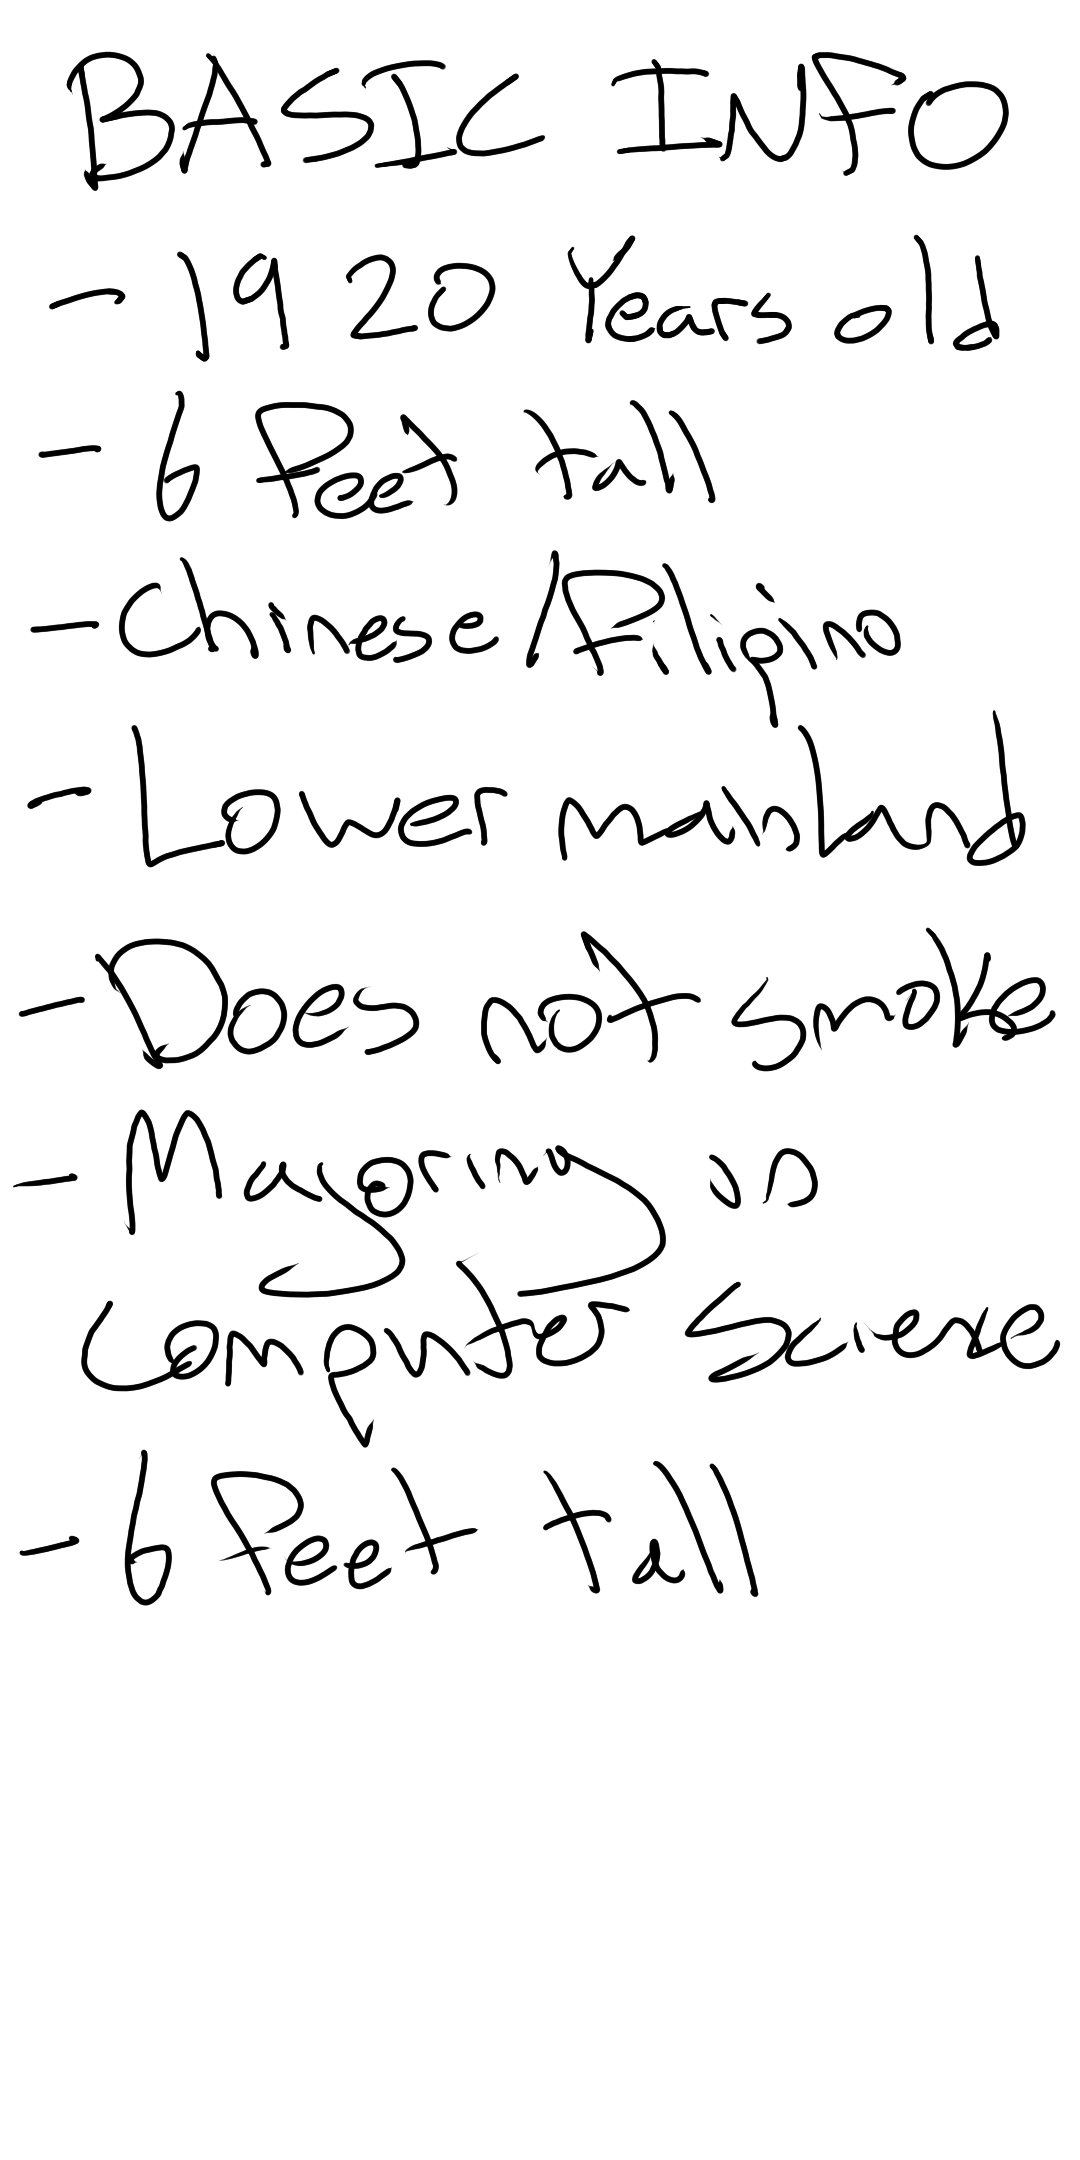 BASIC INFO
- 19 20 Years old
- 6 feet tall
- Chinese/Filipino
- Lower mainland
- Does not smoke
- Majoring in
Computer Science
- 6 feet tall